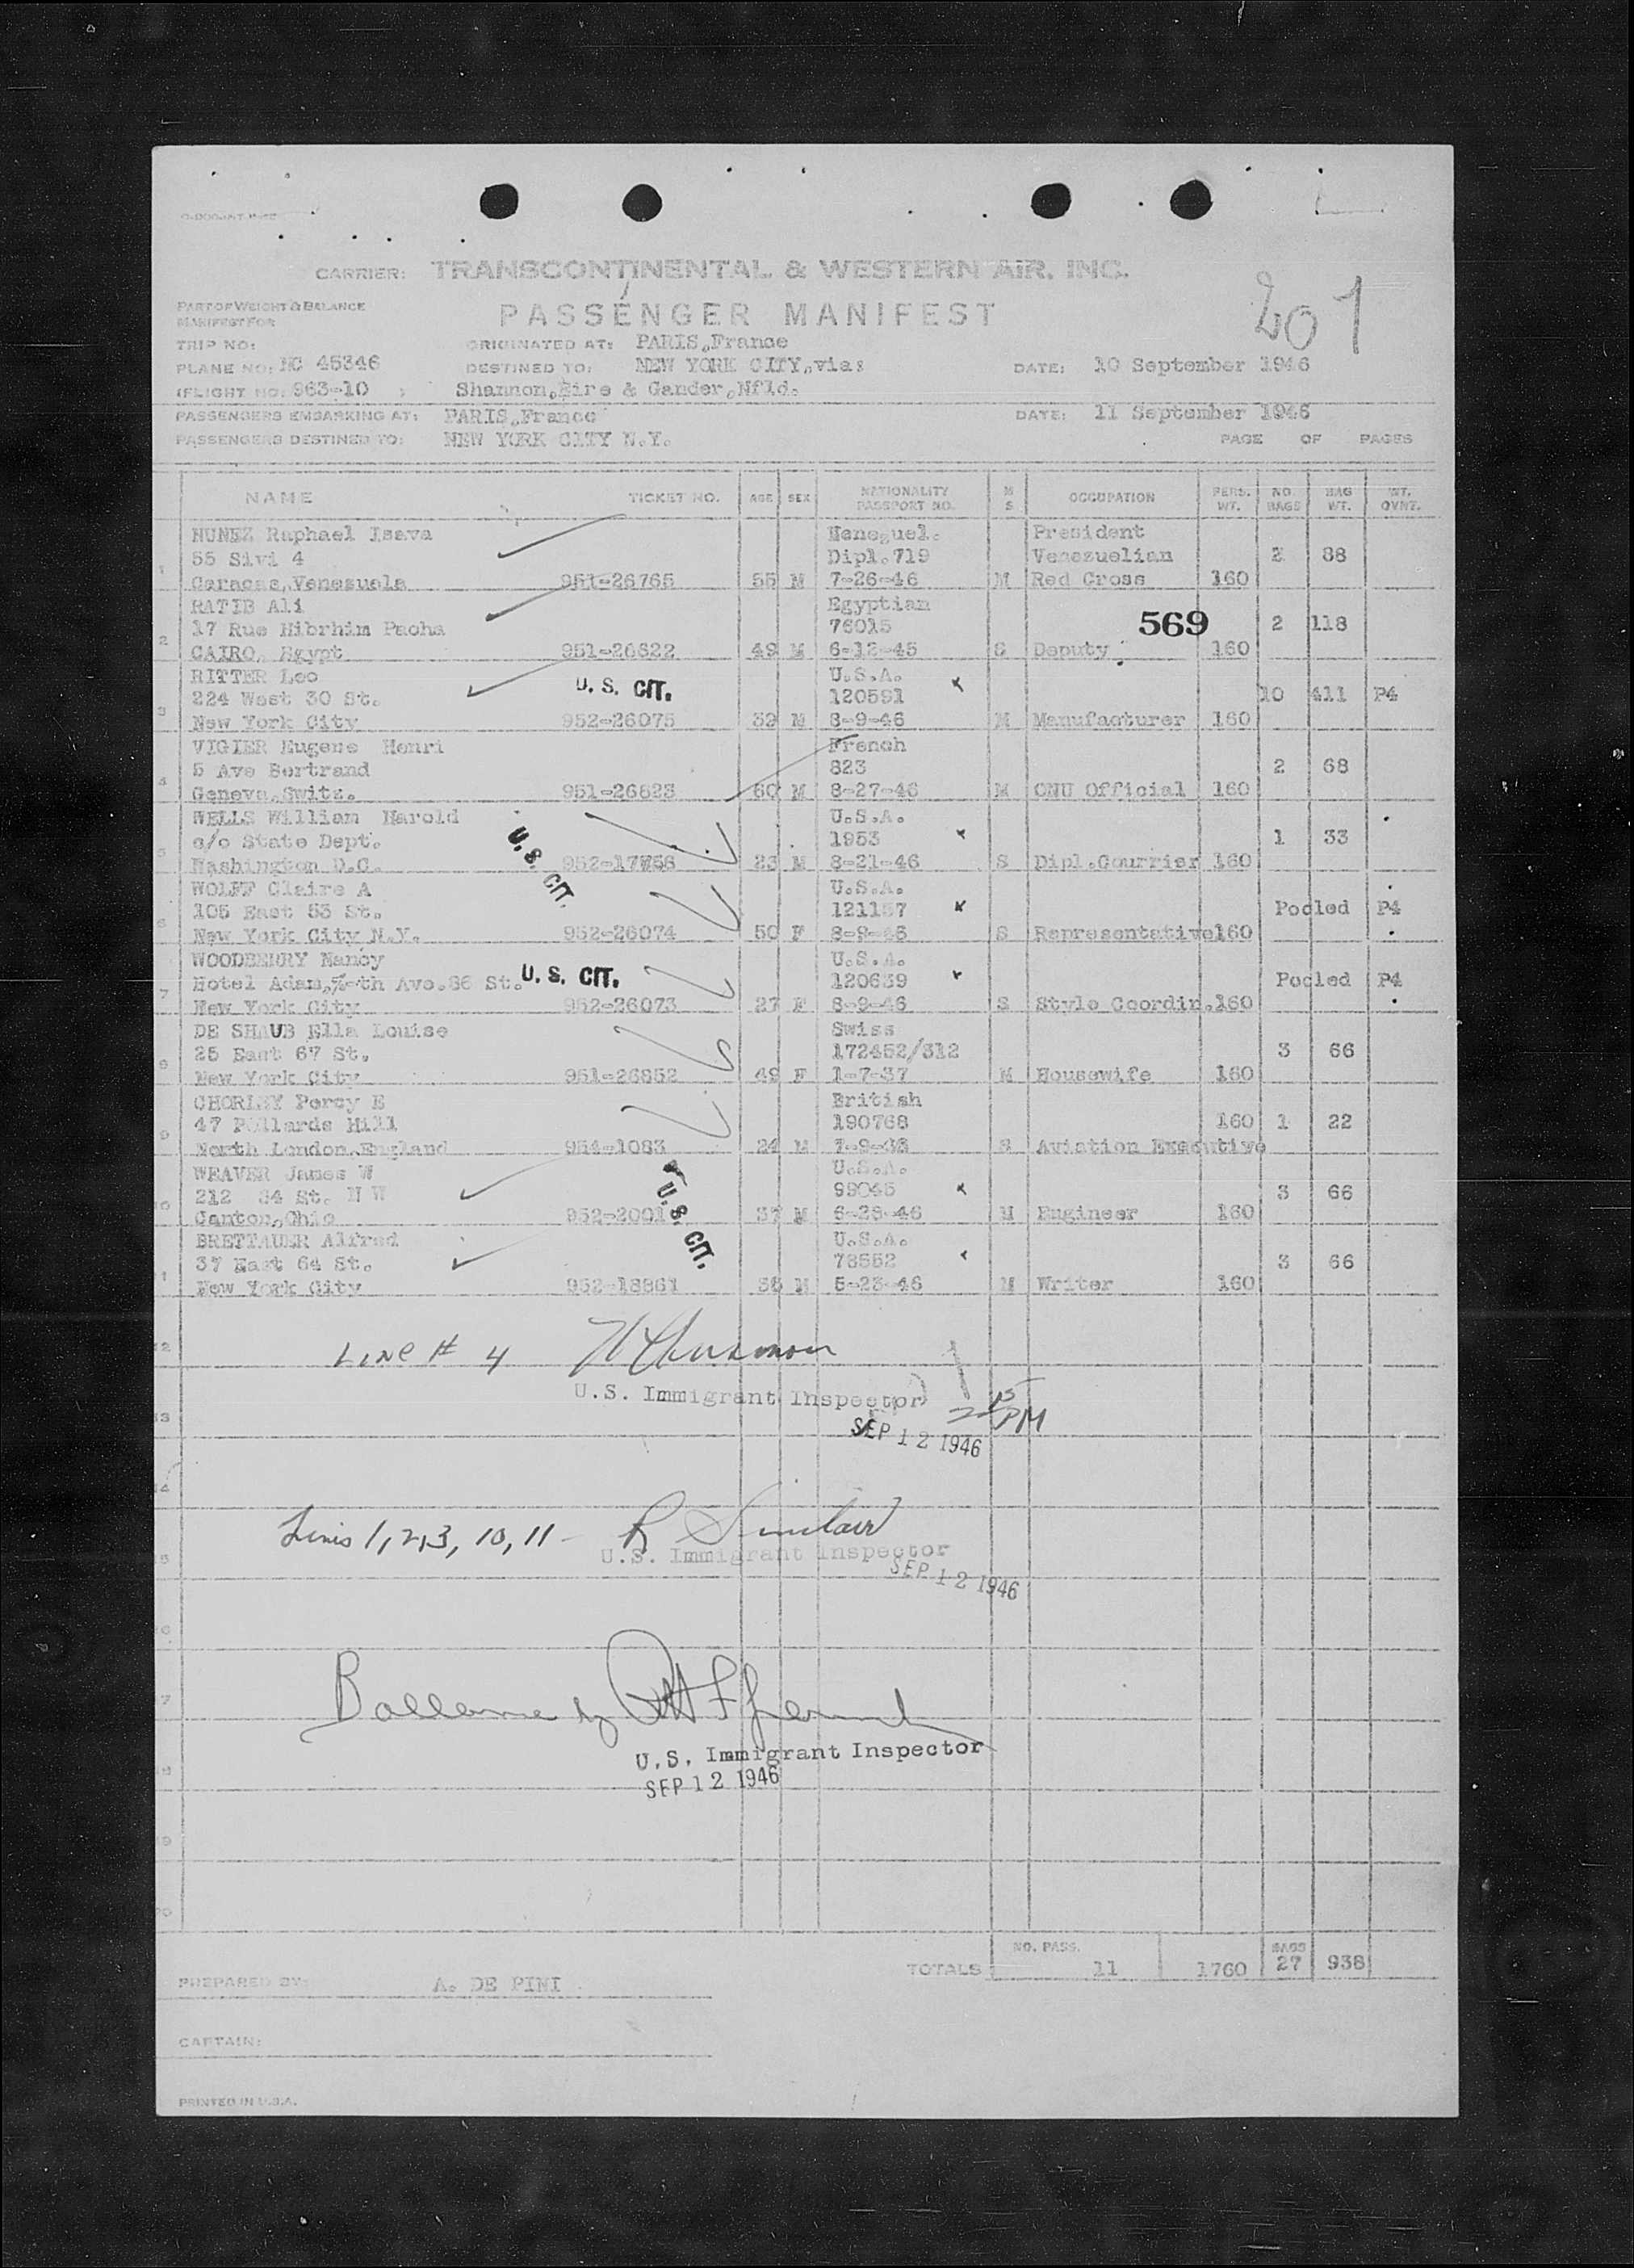 201
CARRIER: TRANSCONTINENTAL & WESTERN AIR, INC.
PART OF WEIGHT & BALANCE
MANIFEST FOR
PASSENGER MANIFEST
TRIP NO: ORIGINATED AT: PARIS,France
PLANE NO: NC 45346 DESTINED TO: NEW YORK CITY,via: DATE: 10 September 1946
(FLIGHT NO: 963-10 ) Shannon,Eire & Gander,Nfld.
PASSENGERS EMBARKING AT: PARIS,France DATE: 11 September 1946
PASSENGERS DESTINED TO: NEW YORK CITY N.Y. PAGE OF PAGES
NAME TICKET NO. AGE SEX NATIONALITY PASSPORT NO. M S OCCUPATION PERS. WT. NO. BAGS BAG WT. INT. QVNT.
NUNEZ Raphael Isava Meneguel. President
55 Sivi 4 Dipl.719 Venezuelian 2 88
1 Caracas,Venezuela 951-26765 55 M 7-26-46 M Red Cross 160
RATIB Ali Egyptian
17 Rue Hibrhim Pacha 76015 569 2 118
2 CAIRO, Egypt 951-26822 49 M 6-12-45 S Deputy 160
RITTER Leo U.S. CIT. U.S.A.
224 West 30 St. 120591 10 411 P4
3 New York City 952-26075 32 M 8-9-46 M Manufacturer 160
VIGIER Eugene Henri French
5 Ave Bertrand 823 2 68
4 Geneva,Switz. 951-26823 60 M 8-27-46 M ONU Official 160
WELLS William Harold U.S.A.
c/o State Dept. U.S. CIT. 1953 1 33
5 Washington D.C. 952-17756 23 M 8-21-46 S Dipl.Courrier 160
WOLFF Claire A U.S.A.
105 East 53 St. 121157 Pooled P4
6 New York City N.Y. 952-26074 50 F 8-9-46 S Representative160
WOODBERRY Nancy U.S.A.
Hotel Adam, th Ave.86 St. U.S. CIT. 120639 Pooled P4
7 New York City 952-26073 27 F 8-9-46 S Style Coordin.160
DE SHAUB Ella Louise Swiss
25 East 67 St. 172452/312 3 66
8 New York City 951-26852 49 F 1-7-37 M Housewife 160
CHORLEY Percy E British
47 Pollards Hill 190768 160 1 22
9 North London,England 954-1083 24 M 7-9-38 S Aviation Executive
WEAVER James W U.S.A.
212 34 St. N W U.S. CIT. 99045 3 66
10 Canton,Ohio 952-2001 37 M 6-28-46 M Engineer 160
BRETTAUER Alfred U.S.A.
37 East 64 St. 78552 3 66
11 New York City 952-18861 38 M 5-23-46 M Writer 160
12 Line # 4
U.S. Immigrant Inspector
13 SEP 12 1946 2 15 PM
14
Lines 1,2,3, 10, 11 - R Sinclair
15 U.S. Immigrant Inspector
SEP 12 1946
16
17 Ballance by
U.S. Immigrant Inspector
18 SEP 12 1946
19
20
TOTALS NO. PASS. 11 1760 BAGS 27 938
PREPARED BY: A. DE PINI
CAPTAIN:
PRINTED IN U.S.A.